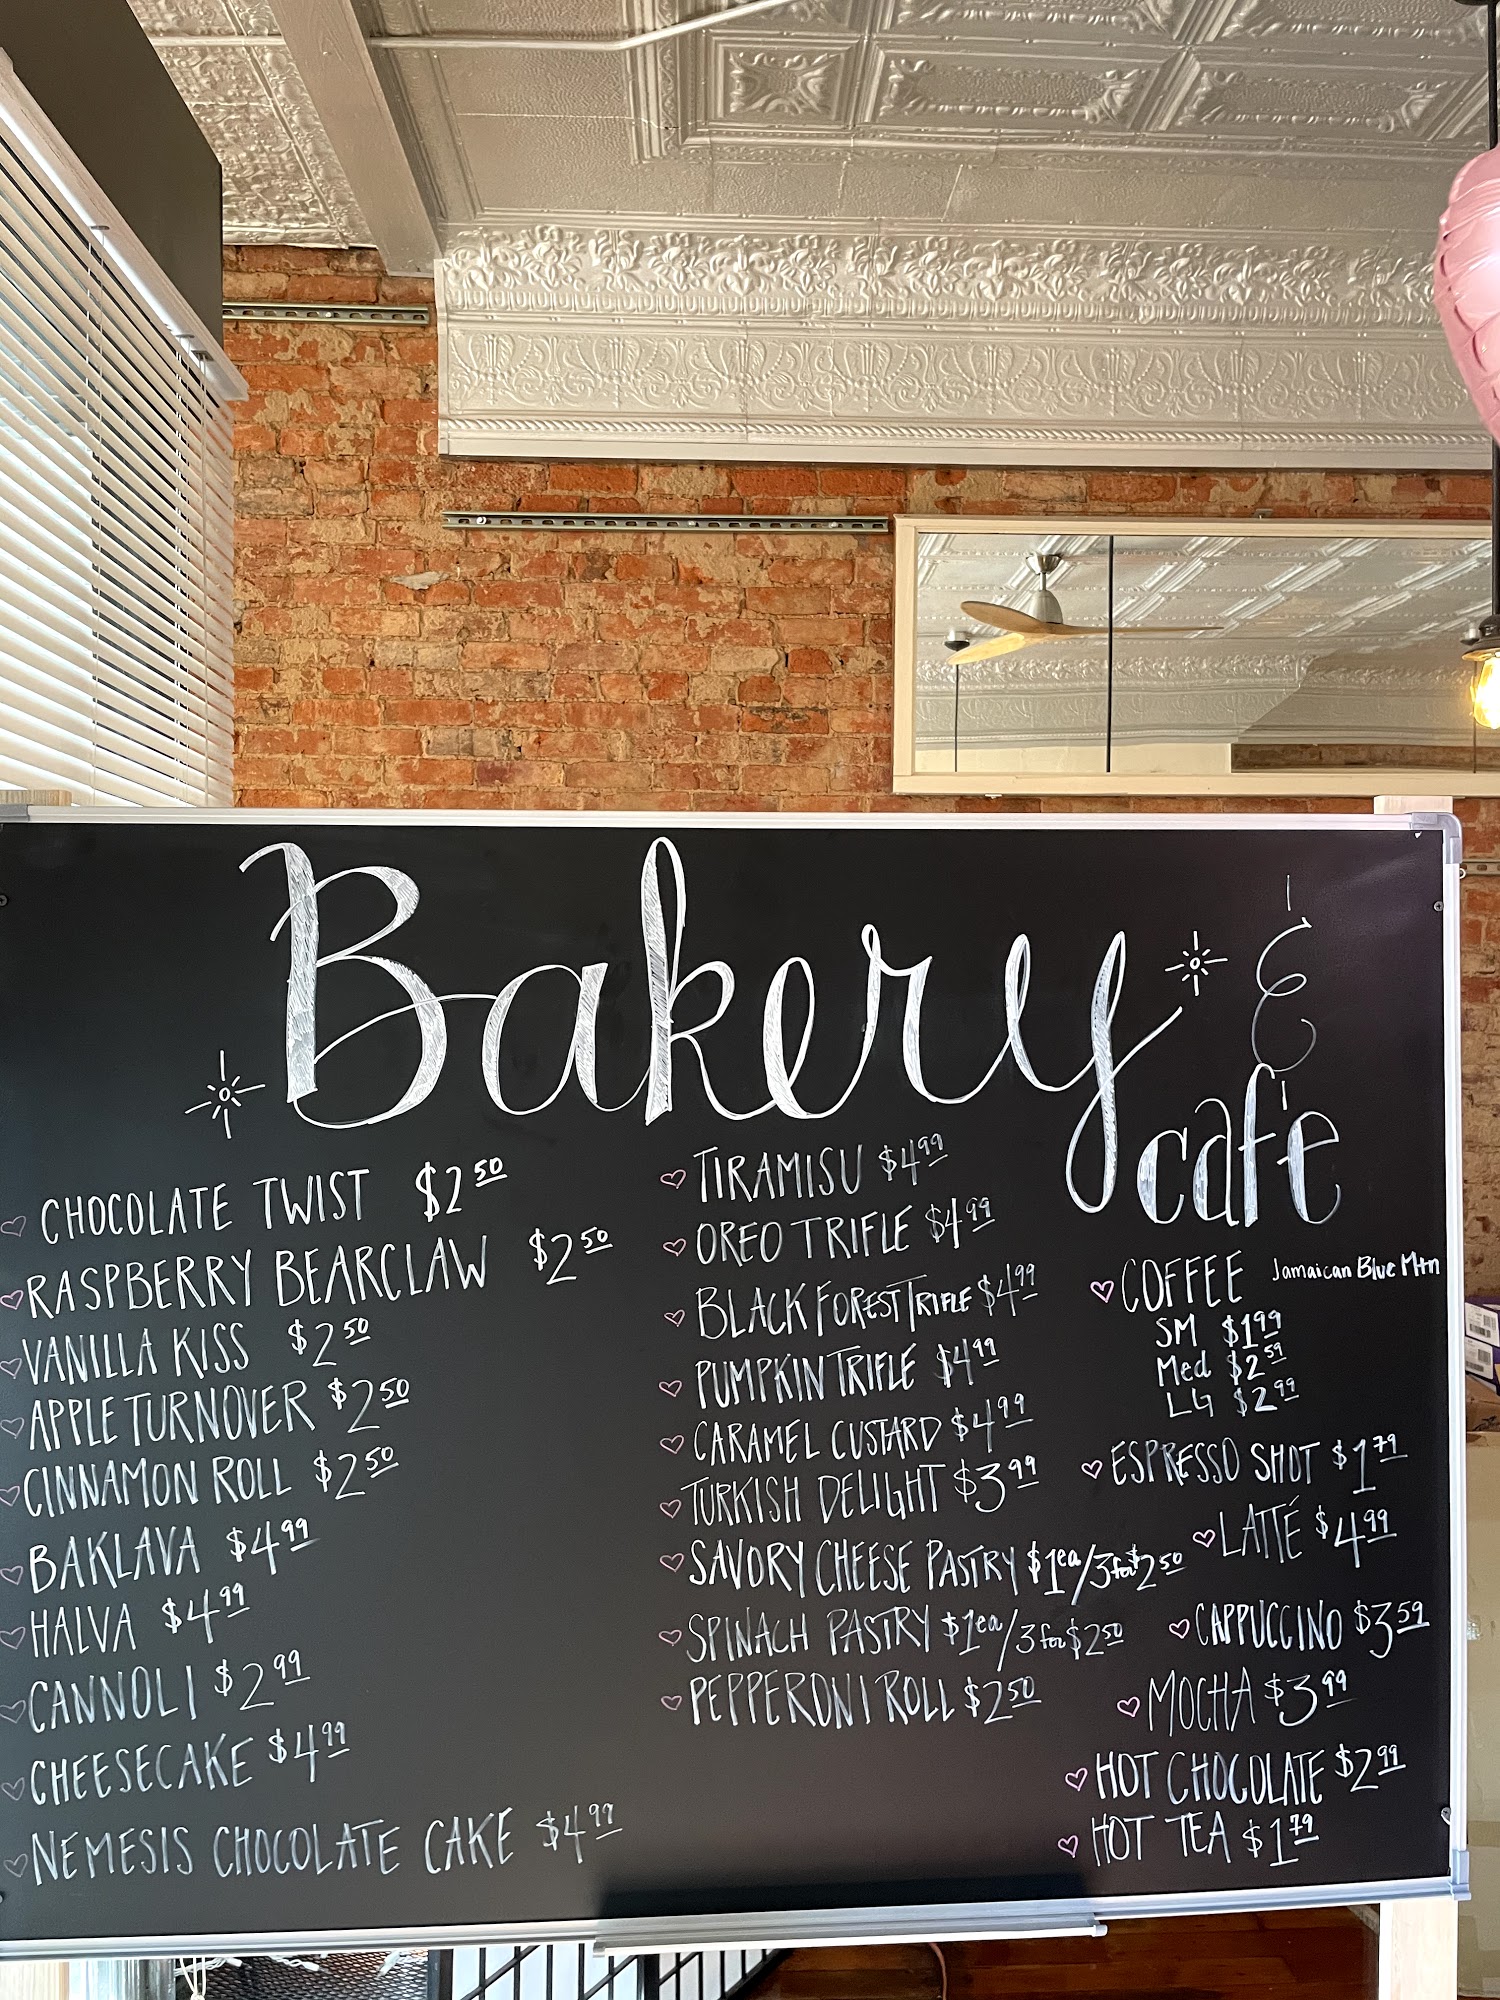 Bakery
café
CHOCOLATE TWIST $2.50
RASPBERRY BEARCLAW $2.50
VANILLA KISS $2.50
APPLE TURNOVER $2.50
CINNAMON ROLL $2.50
BAKLAVA $4.99
HALVA $4.99
CANNOLI $2.99
CHEESECAKE $4.99
NEMESIS CHOCOLATE CAKE $4.99
TIRAMISU $4.99
OREO TRIFLE $4.99
BLACK FOREST TRIFLE $4.99
PUMPKIN TRIFLE $4.99
CARAMEL CUSTARD $4.99
TURKISH DELIGHT $3.99
SAVORY CHEESE PASTRY $1ea/3for$2.50
SPINACH PASTRY $1ea/3for$2.50
PEPPERONI ROLL $2.50
COFFEE Jamaican Blue Mtn
SM $1.99
Med $2.59
LG $2.99
ESPRESSO SHOT $1.79
LATTÉ $4.99
CAPPUCCINO $3.59
MOCHA $3.99
HOT CHOCOLATE $2.99
HOT TEA $1.79